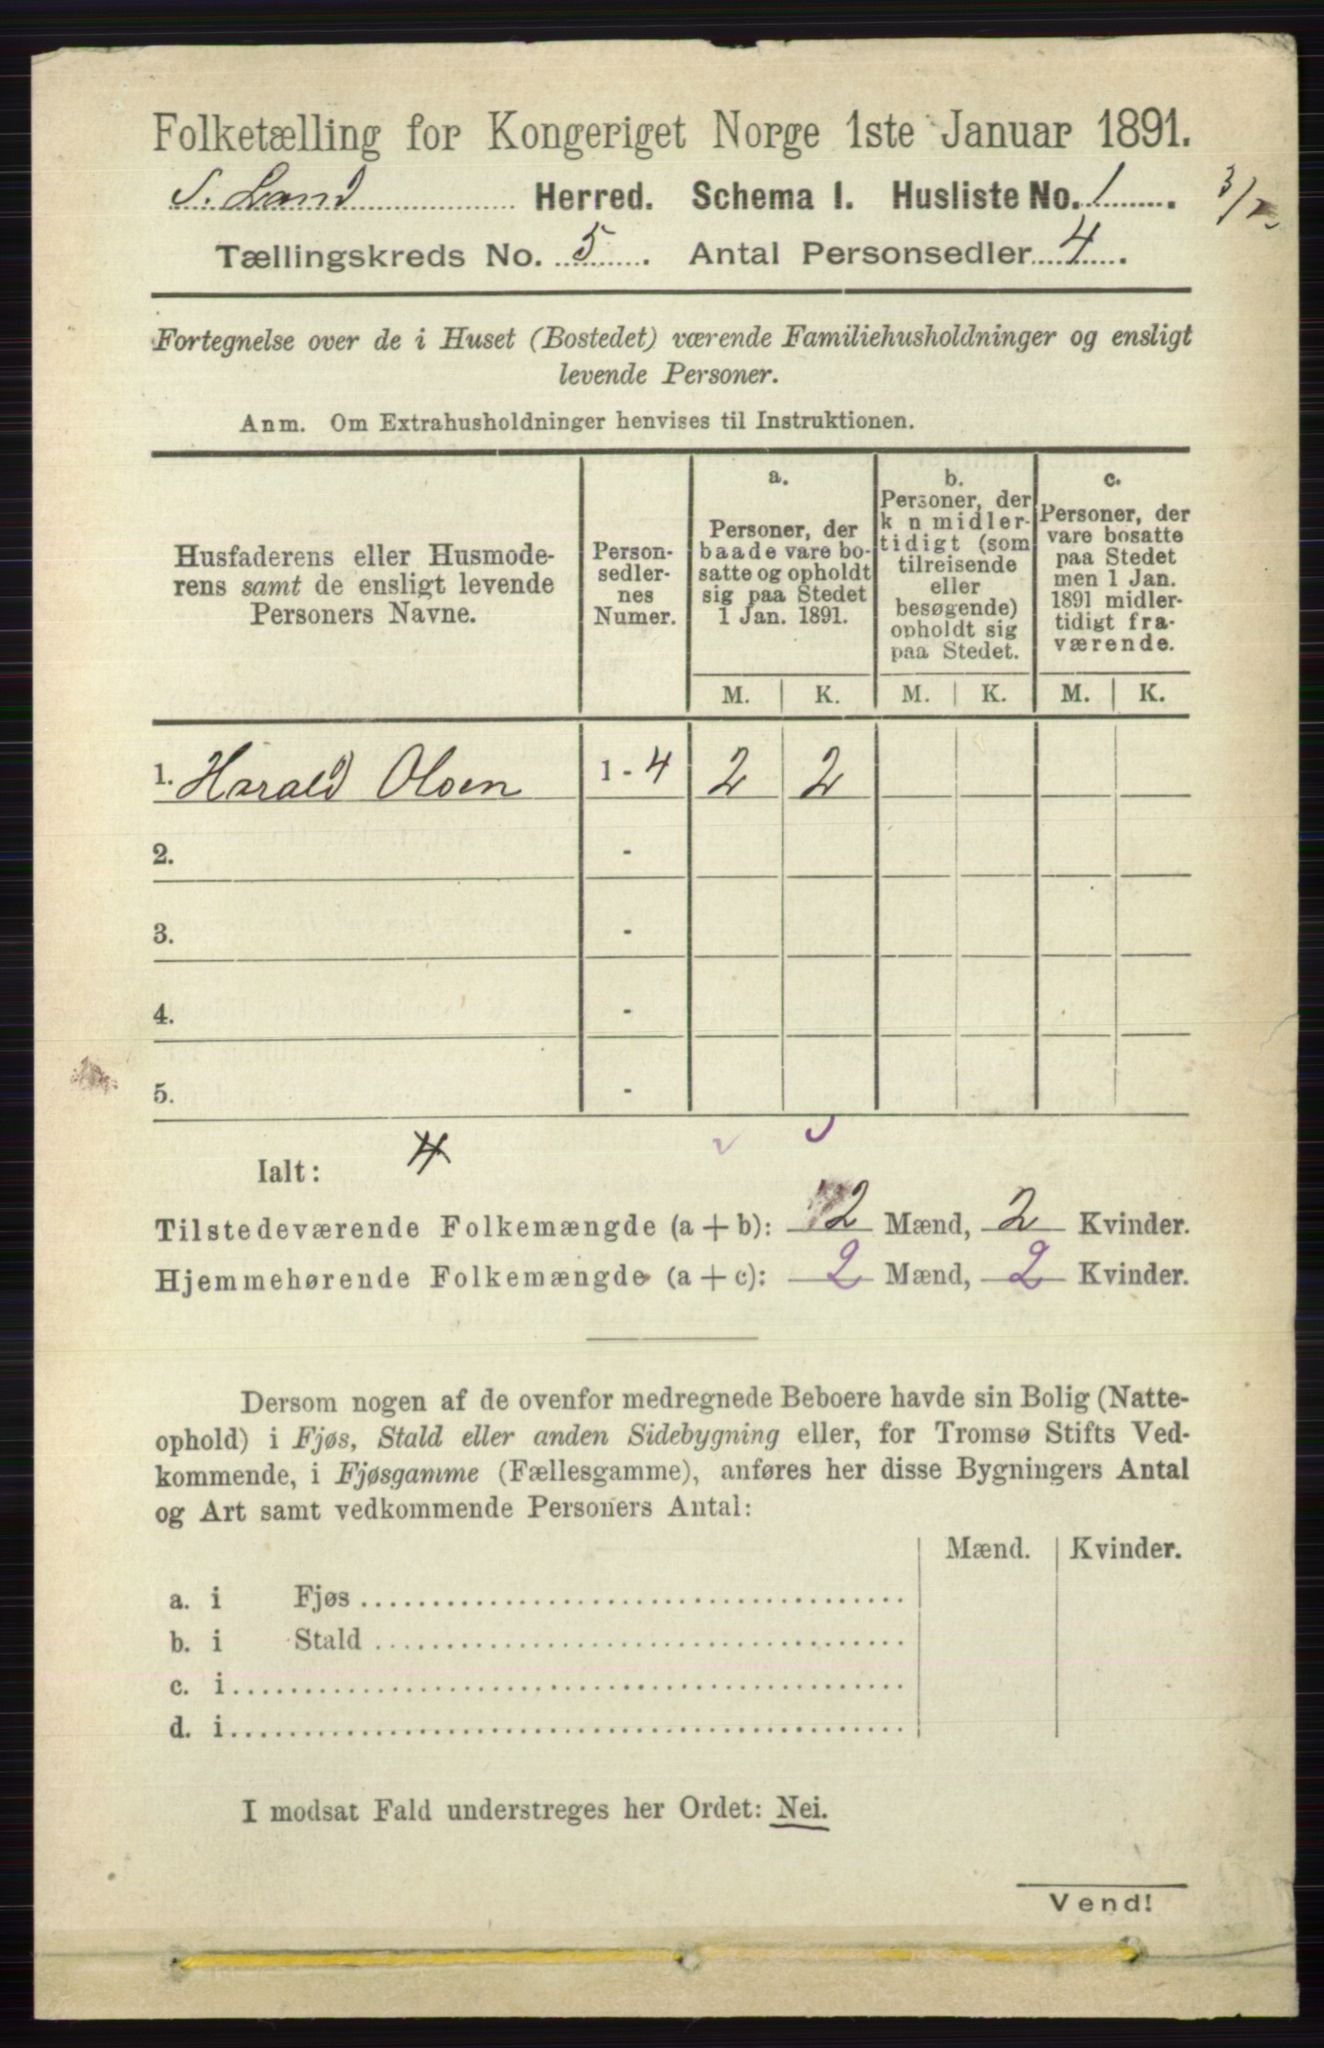 Folketælling for Kongeriget Norge 1ste Januar 1891.
S. Land Herred. Schema I. Husliste No. 1
Tællingskreds No. 5. Antal Personsedler 4.
Fortegnelse over de i Huset (Bostedet) værende Familiehusholdninger og ensligt
levende Personer.
Anm. Om Extrahusholdninger henvises til Instruktionen.
Husfaderens eller Husmode-
rens samt de ensligt levende
Personers Navne.
Person-
sedler-
nes
Numer.
a.
Personer, der
baade vare bo-
satte og opholdt
sig paa Stedet
1 Jan. 1891.
b.
Personer, der
k n midler-
tidigt (som
tilreisende
eller
besøgende)
opholdt sig
paa Stedet.
c.
Personer, der
vare bosatte
paa Stedet
men 1 Jan.
1891 midler-
tidigt fra-
værende.
M. K. M. K. M. K.
1. Harald Olsen 1 - 4 2 2
2. -
3. -
4. -
5. -
Ialt: 4
Tilstedeværende Folkemængde (a + b): 2 Mænd, 2 Kvinder.
Hjemmehørende Folkemængde (a + c): 2 Mænd, 2 Kvinder.
Dersom nogen af de ovenfor medregnede Beboere havde sin Bolig (Natte-
ophold) i Fjøs, Stald eller anden Sidebygning eller, for Tromsø Stifts Ved-
kommende, i Fjøsgamme (Fællesgamme), anføres her disse Bygningers Antal
og Art samt vedkommende Personers Antal:
Mænd. Kvinder.
a. i Fjøs
b. i Stald
c. i
d. i
I modsat Fald understreges her Ordet: Nei.
Vend!